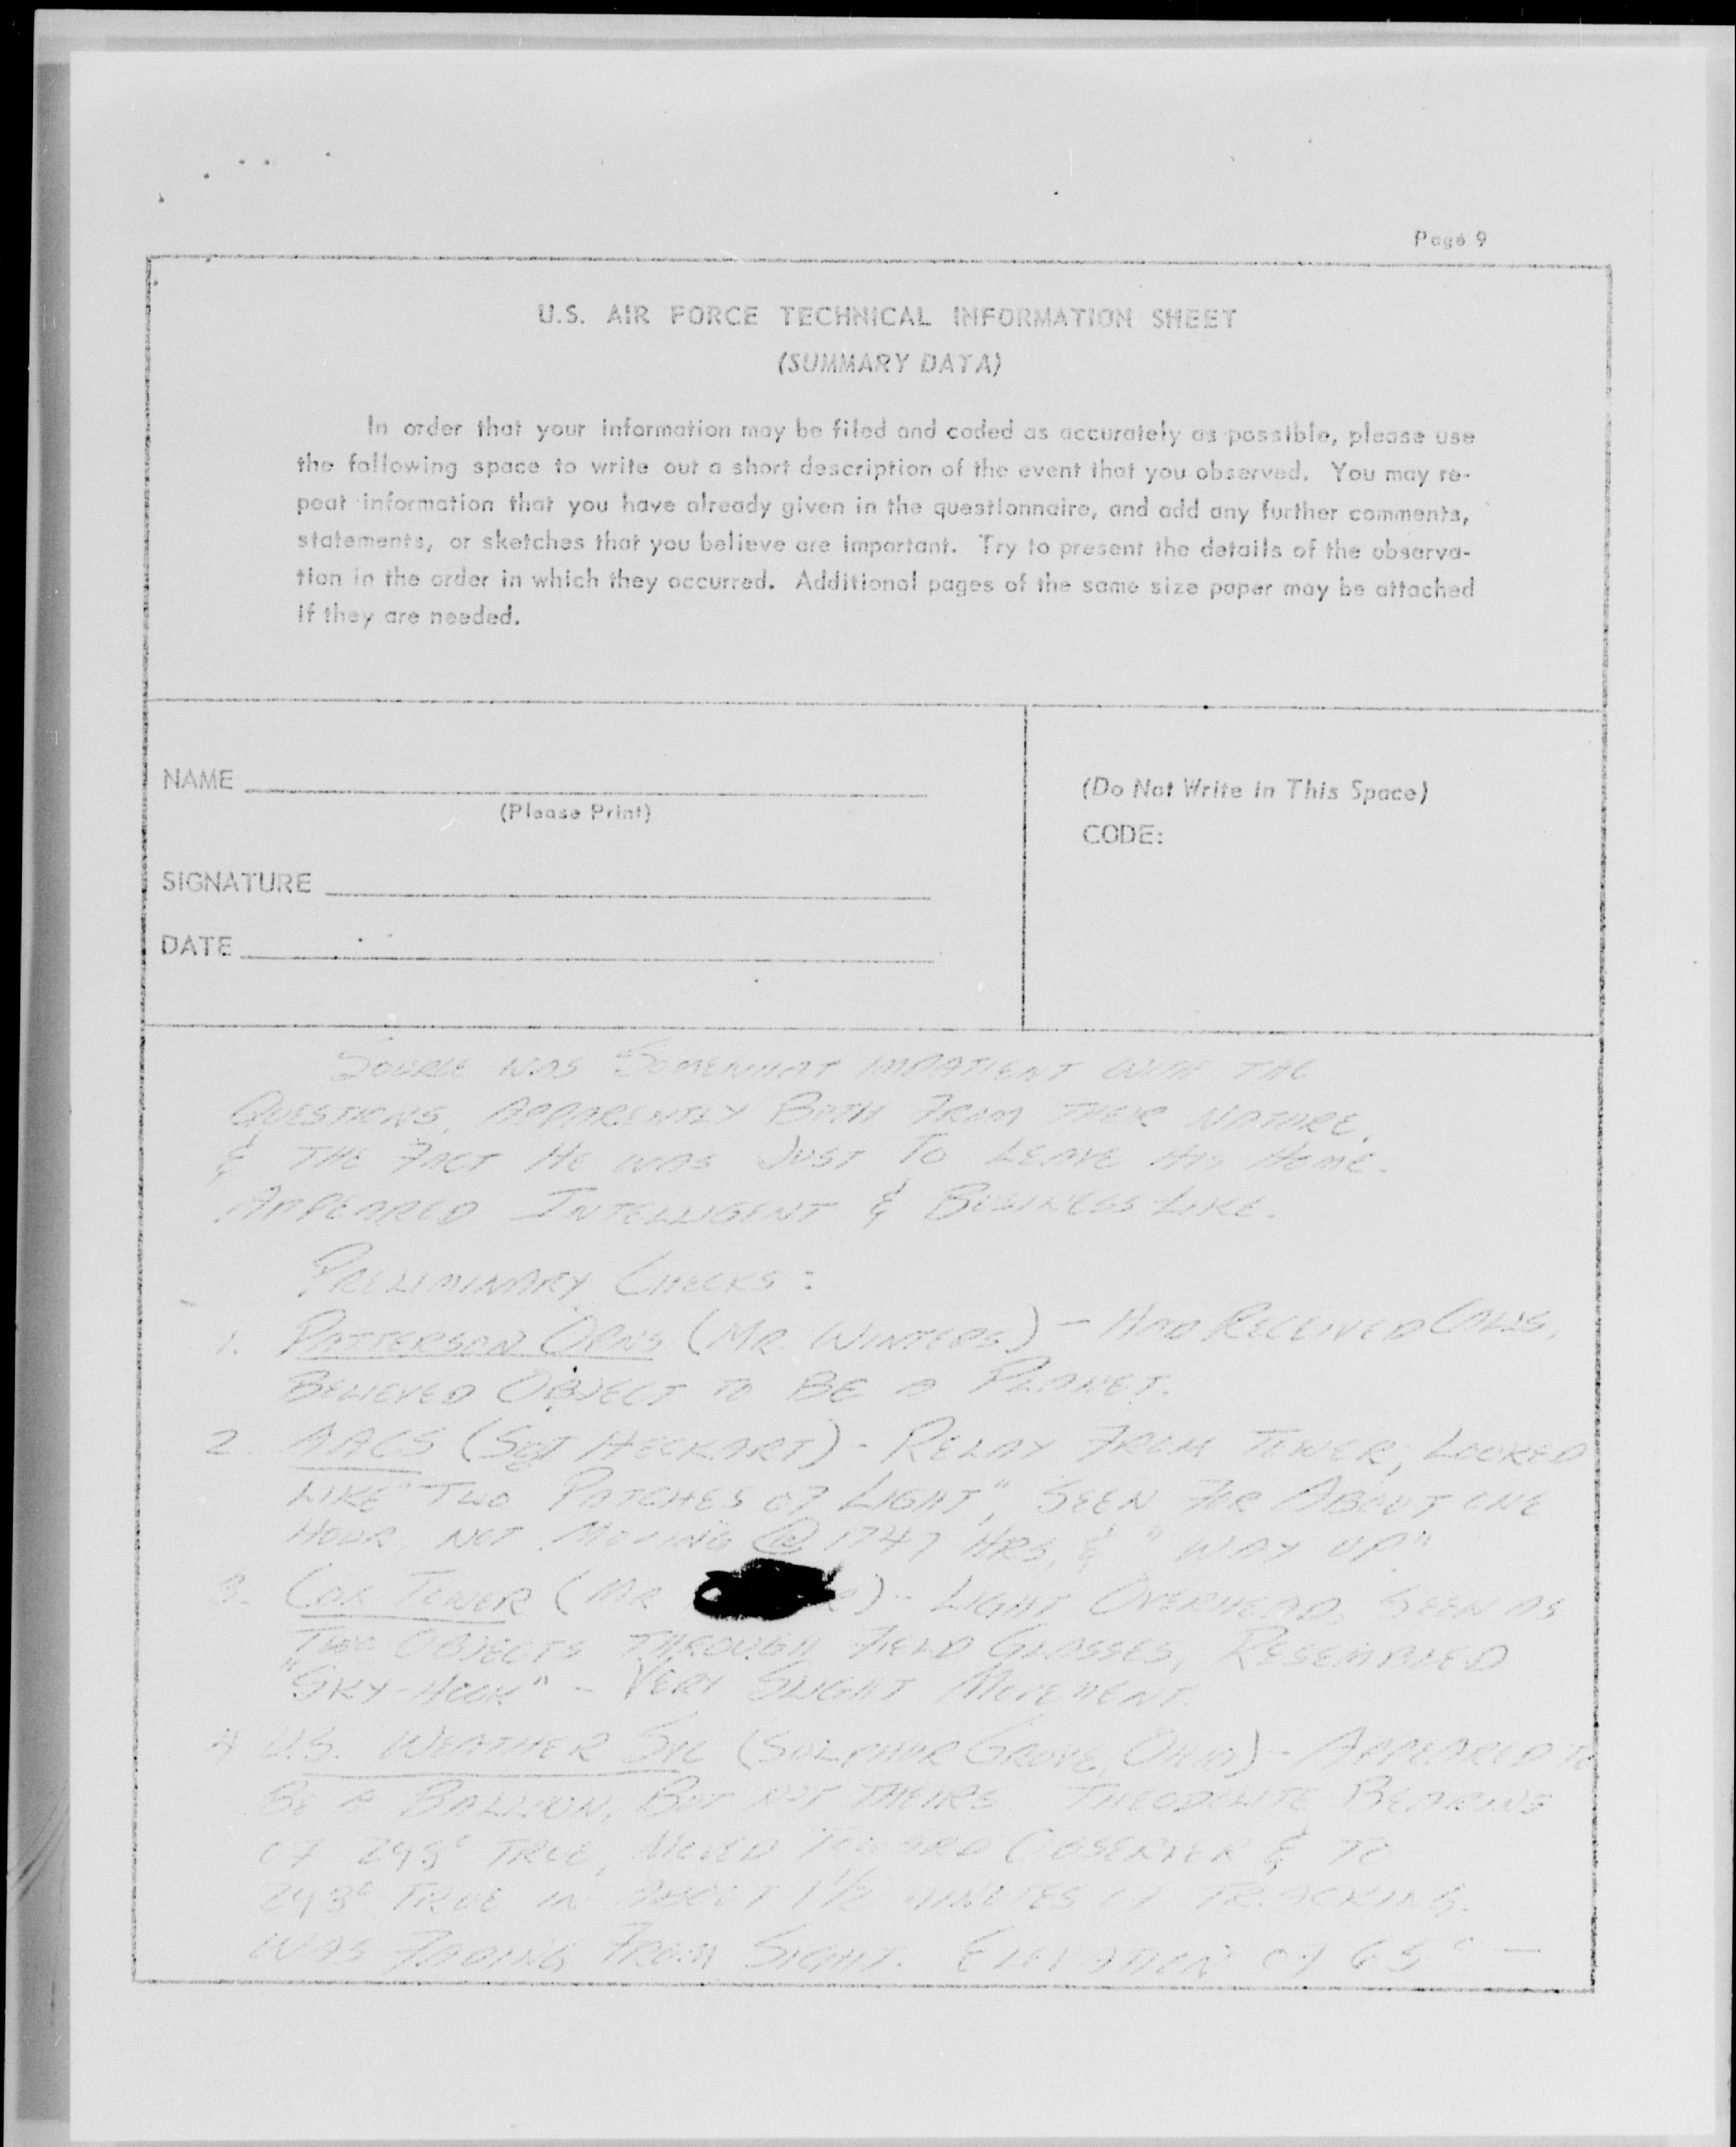 Page 9
U.S. AIR FORCE TECHNICAL INFORMATION SHEET
(SUMMARY DATA)
In order that your information may be filed and coded as accurately as possible, please use
the following space to write out a short description of the event that you observed. You may re-
peat information that you have already given in the questionnaire, and add any further comments,
statements, or sketches that you believe are important. Try to present the details of the observa-
tion in the order in which they occurred. Additional pages of the same size paper may be attached
if they are needed.
NAME
(Please Print)
SIGNATURE
DATE
(Do Not Write in This Space)
CODE:
SOURCE WAS SOMEWHAT IMPATIENT WITH THE
QUESTIONS, APPARENTLY BOTH FROM THEIR NATURE,
& THE FACT HE WAS JUST TO LEAVE HIS HOME.
APPEARED INTELLIGENT & BUSINESS-LIKE.
PRELIMINARY CHECKS:
1. PATTERSON OPNS (MR. WINTERS) - HAD RECEIVED CALLS,
BELIEVED OBJECT TO BE A PLANET.
2. AACS (SGT HECKART) - RELAY FROM TOWER, LOOKED
LIKE "TWO PATCHES OF LIGHT", SEEN FOR ABOUT ONE
HOUR, NOT MOVING @ 1747 HRS, & "WAY UP".
3. COX TOWER (MR ) - LIGHT OVERHEAD, SEEN AS
TWO OBJECTS THROUGH FIELD GLASSES, RESEMBLED
"SKY-HOOK" - VERY SLIGHT MOVEMENT.
4 U.S. WEATHER SVC (SULPHUR GROVE, OHIO) - APPEARED TO
BE A BALLOON, BUT NOT THEIRS. THEODOLITE BEARING
OF TRUE, MOVED TOWARD OBSERVER & TO
TRUE IN ABOUT 1½ MINUTES OF TRACKING.
WAS FADING FROM SIGHT. ELEVATION OF 65° —